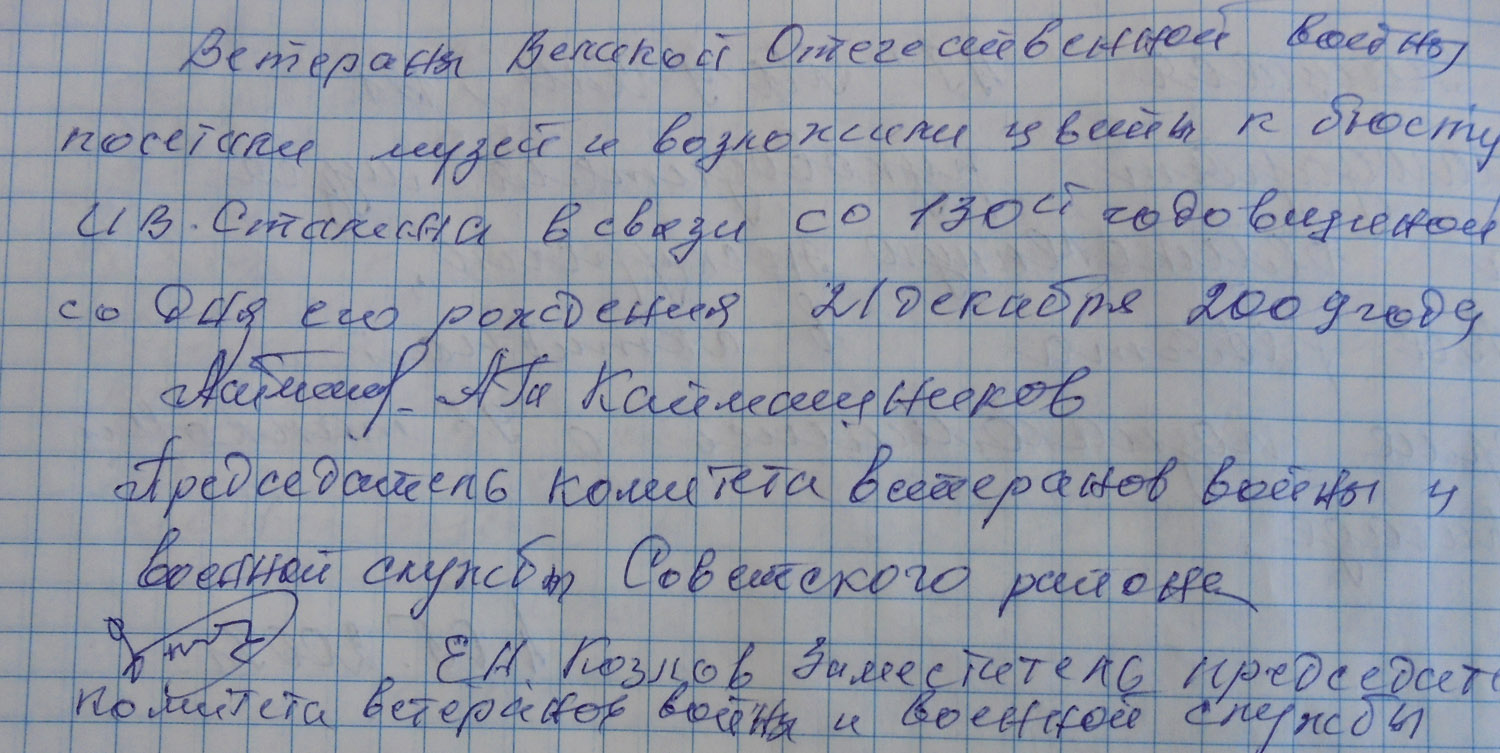 Ветераны Великой Отечественной войны
посетили музей и возложили цветы к бюсту
И В. Сталина в связи со 130ой годовщиной
со Дня его рождения 21 декабря 2009 году
Кайманщников
Председатель комитета ветеранов войны и
военной службы Советского района
Е Н. Козлов Заместитель председате
комитета ветеранов войны и военной службы